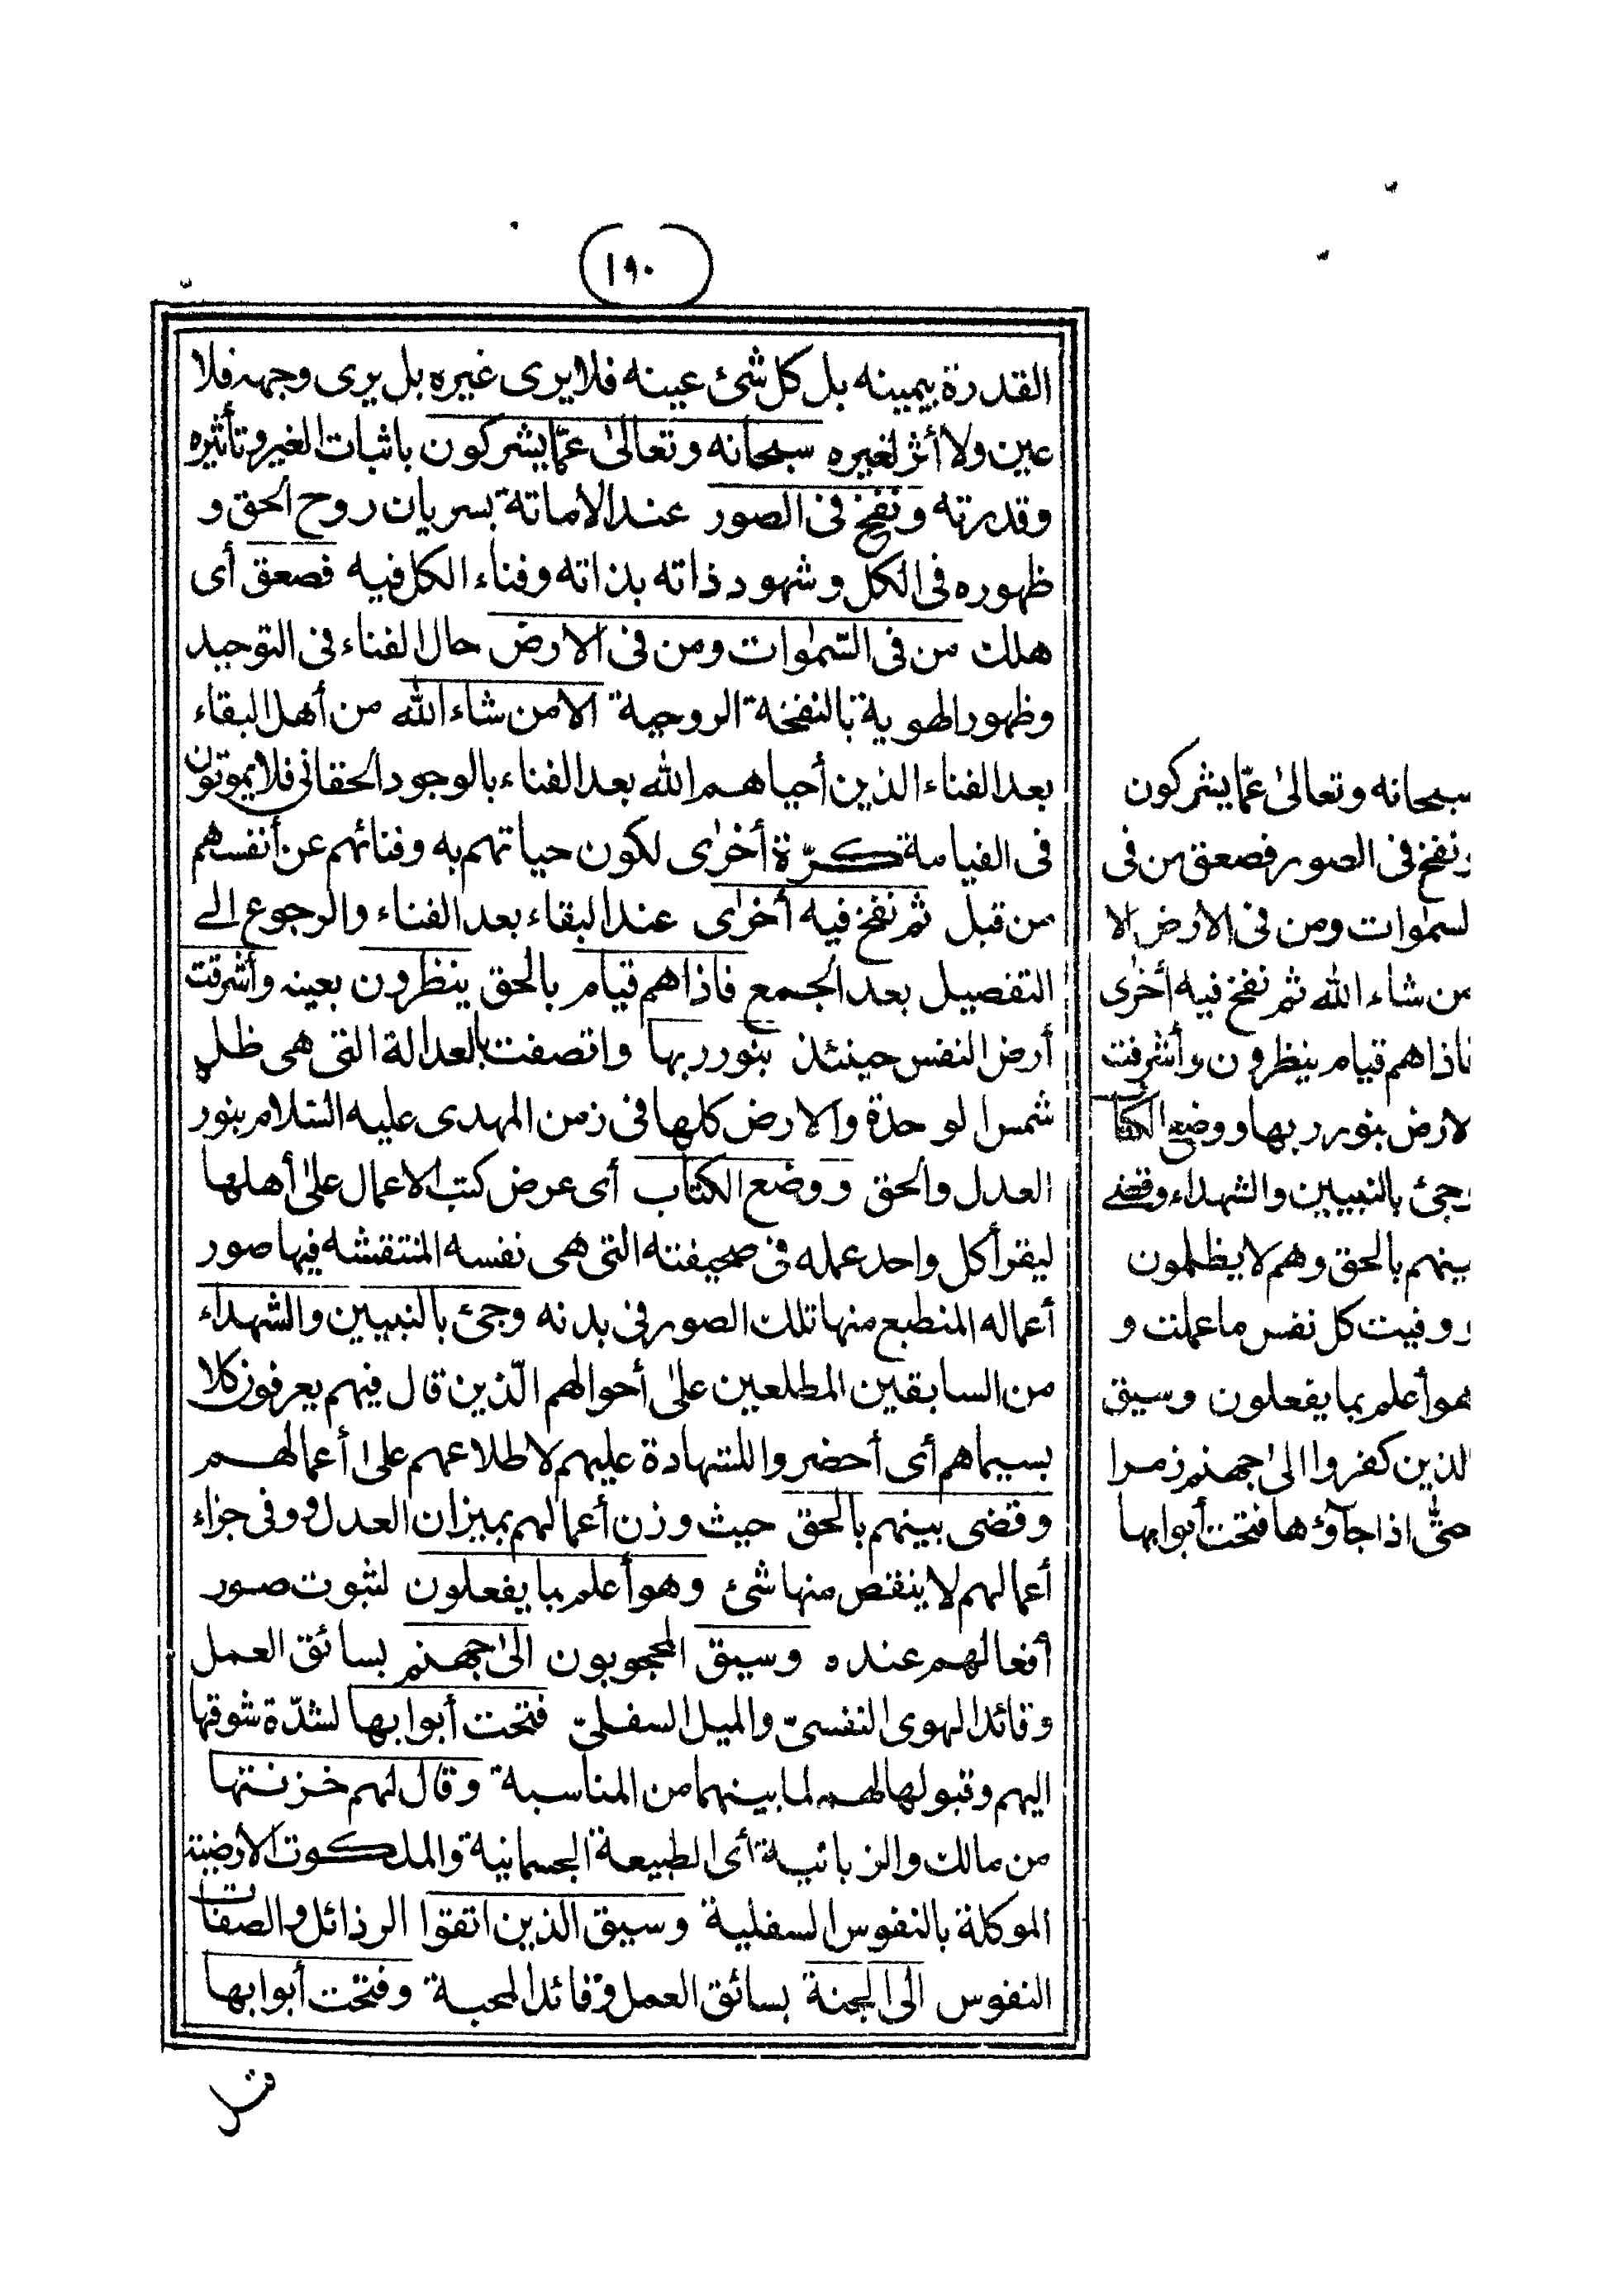 (١٩٠)
القدرة بيمينه بل كل شئ عينه فلا يرى غيره بل يرى وجهه فلا
عين ولا أثر لغيره سبحانه وتعالىٰ عمّا يشركون باثبات الغير وتأثيره
وقدرته ونفخ فى الصور عند الاماتة بسريان روح الحق و
ظهوره فى الكل وشهود ذاته بذاته وفناء الكل فيه فصعق أى
هلك من فى السّمٰوات ومن فى الارض حال الفناء فى التوحيد
وظهور الهوية بالنفخة الروحية الا من شاء الله من أهل البقاء
بعد الفناء الذين أحياهم الله بعد الفناء بالوجود الحقانى فلا يموتون
فى القيامة كرّة أخرٰى لكون حياتهم به وفنائهم عن أنفسهم
من قبل ثم نفخ فيه أخرٰى عند البقاء بعد الفناء والرجوع الى
التفصيل بعد الجمع فاذا هم قيام بالحق ينظرون بعينه وأشرقت
أرض النفس حينئذ بنور ربها واتصفت بالعدالة التى هى ظل
شمس الوحدة والارض كلها فى زمن المهدى عليه السّلام بنور
العدل والحق ووضع الكتاب أى عرض كتب الاعمال علىٰ أهلها
ليقرأ كل واحد عمله فى صحيفته التى هى نفسه المنتقشه فيها صور
أعماله المنطبع منها تلك الصور فى بدنه وجئ بالنبيين والشهداء
من السابقين المطلعين علىٰ أحوالهم الّذين قال فيهم يعرفون كلا
بسيماهم أى أحضروا للشهادة عليهم لاطلاعهم علىٰ أعمالهم
وقضى بينهم بالحق حيث وزن أعمالهم بميزان العدل ووفى جزاء
أعمالهم لا ينقص منها شئ وهو أعلم بما يفعلون لثبوت صور
أفعالهم عنده وسيق المحجوبون الىٰ جهنم بسائق العمل
وقائد الهوى النفسىّ والميل السفلىّ فتحت أبوابها لشدّة شوقها
اليهم وقبولها لهم لما بينهما من المناسبة وقال لهم خزنتها
من مالك والزبانية أى الطبيعة الجسمانية والملكوت الارضية
الموكلة بالنفوس السفلية وسيق الذين اتقوا الرذائل والصفات
النفوس الى الجنة بسائق العمل وقائد المحبة وفتحت أبوابها
سبحانه وتعالىٰ عمّا يشركون
ونفخ فى الصور فصعق من فى
لسمٰوات ومن فى الارض الا
من شاء الله ثم نفخ فيه أخرٰى
فاذا هم قيام ينظرون وأشرقت
لارض بنور ربها ووضع الكتاب
وجئ بالنبيين والشهداء وقضى
بينهم بالحق وهم لا يظلمون
ووفيت كل نفس ما عملت و
هو أعلم بما يفعلون وسيق
لذين كفروا الىٰ جهنم زمرا
حتّٰى اذا جآؤها فتحت أبوابها